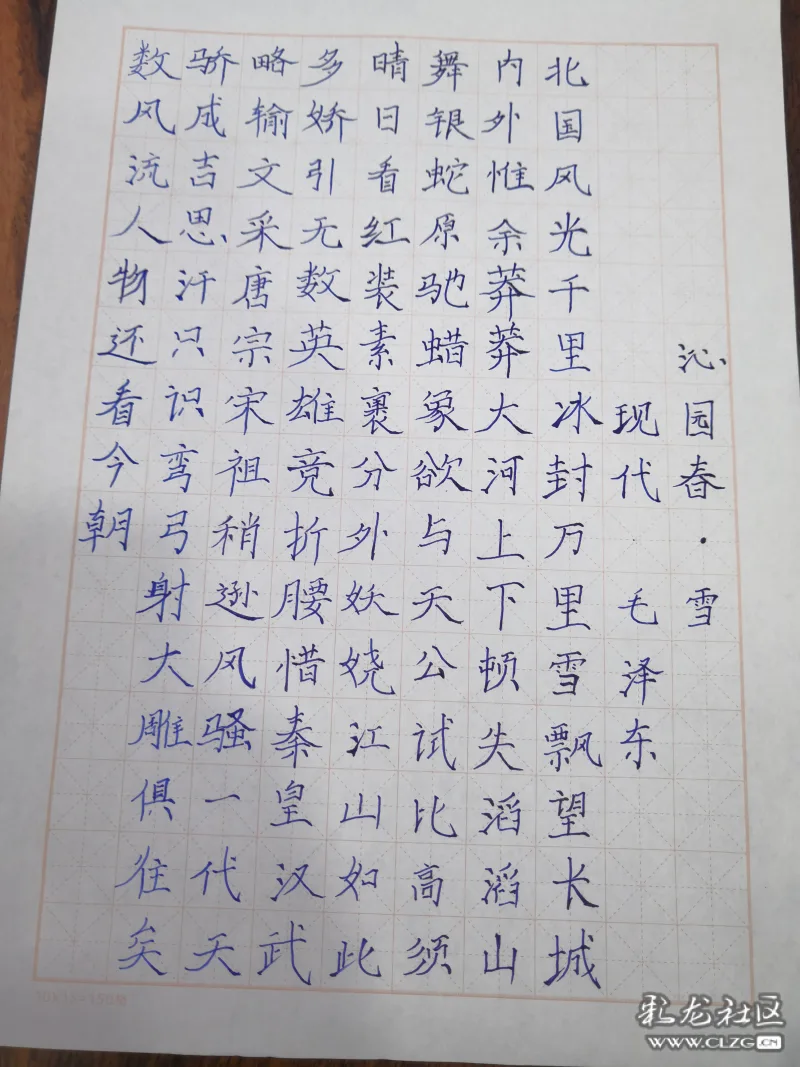 沁园春·雪
现代 毛泽东
北国风光千里冰封万里雪飘望长城
内外惟余莽莽大河上下顿失滔滔山
舞银蛇原驰蜡象欲与天公试比高须
晴日看红装素裹分外妖娆江山如此
多娇引无数英雄竞折腰惜秦皇汉武
略输文采唐宗宋祖稍逊风骚一代天
骄成吉思汗只识弯弓射大雕俱往矣
数风流人物还看今朝
彩龙社区
WWW.CLZG.CN